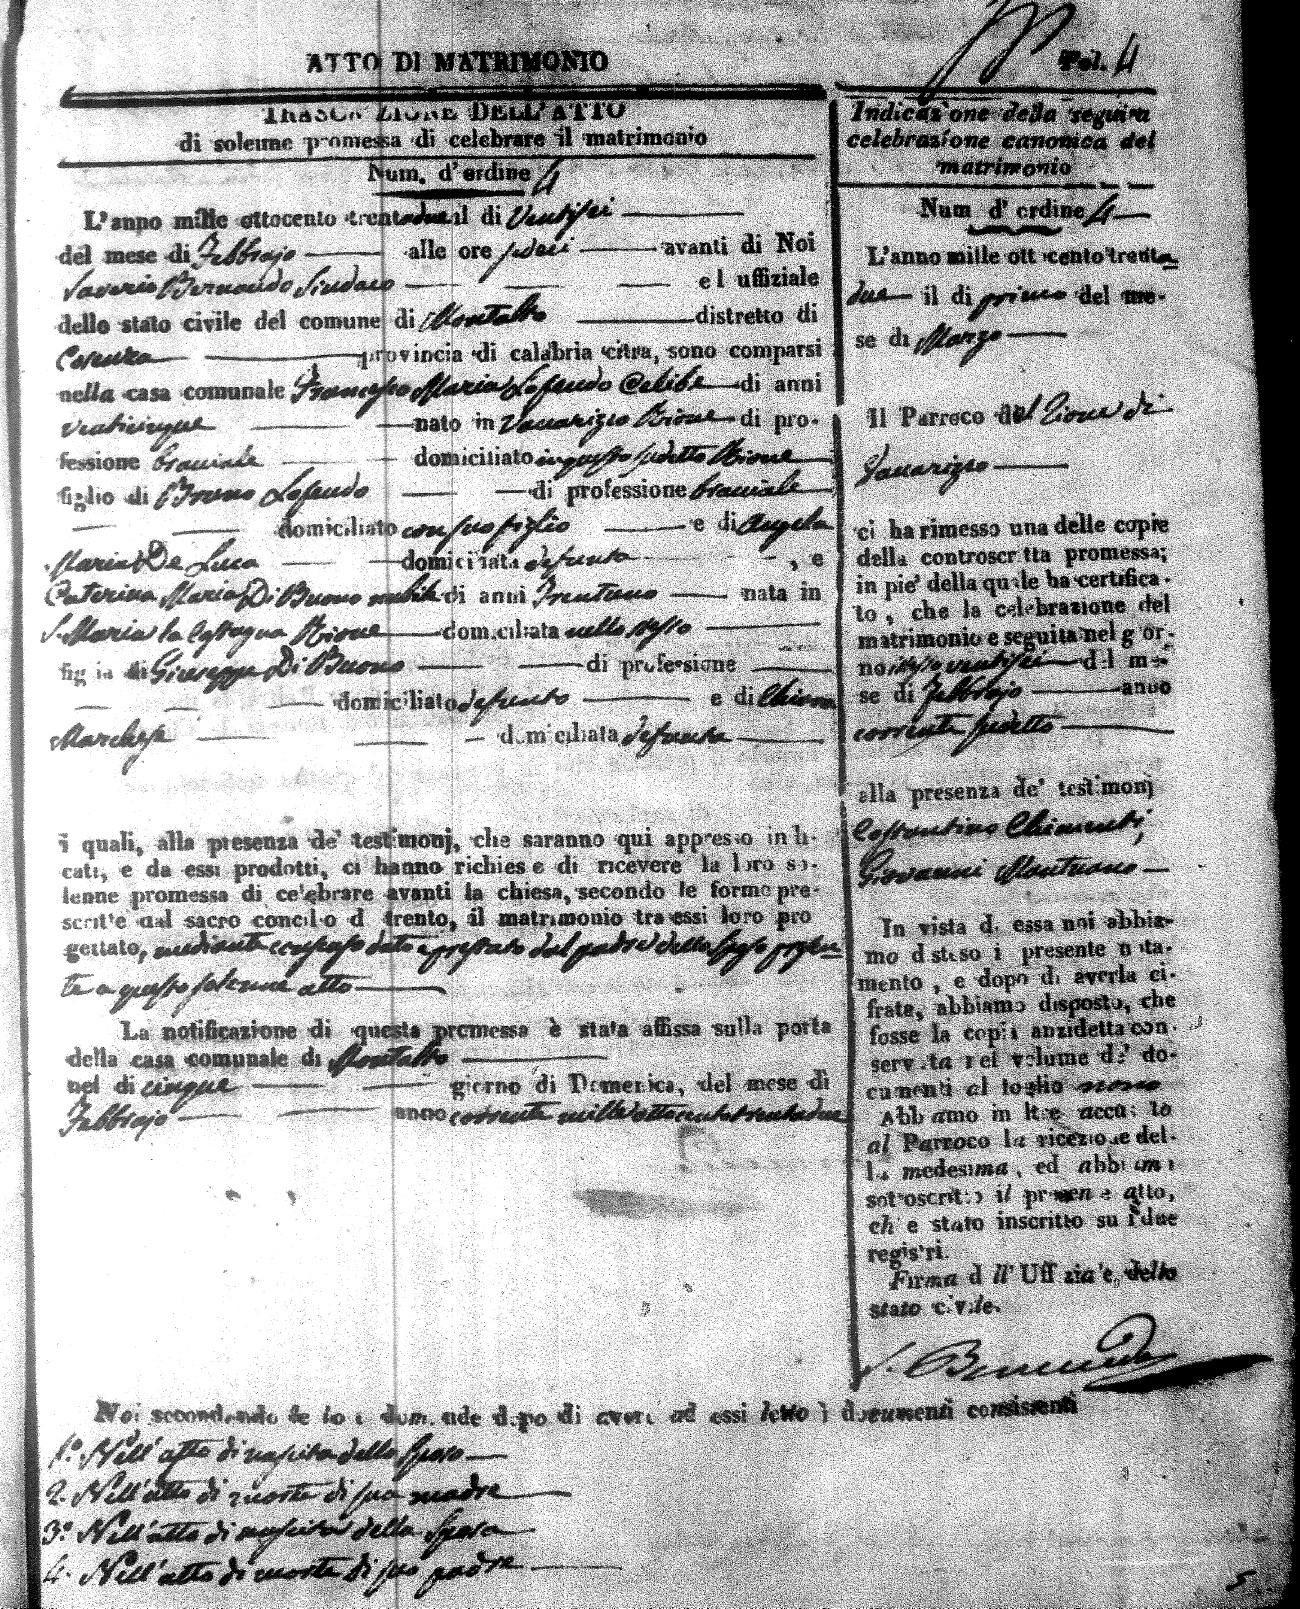 ATTO DI MATRIMONIO
Fol. 4
TRASCRIZIONE DELL'ATTO
di solenne promessa di celebrare il matrimonio
Num. d'ordine 4
L'anno mille ottocento trentadue il di Ventisei
del mese di Febbrajo alle ore sedeci avanti di Noi
Saverio Bernaudo Sindaco ed uffiziale
dello stato civile del comune di Montalto distretto di
Cosenza provincia di calabria citra, sono comparsi
nella casa comunale Francesco Maria Lofeudo Celibe di anni
venticinque nato in Vaccarizzo Rione di pro-
fessione bracciale domiciliato in questo sudetto Rione
figlio di Bruno Lofeudo di professione bracciale
domiciliato con suo figlio e di Angela
Maria De Luca domiciliata defunta , e
Caterina Maria Di Buono nubile di anni Trentuno nata in
S. Maria la Castagna Rione domiciliata nello stesso
figlia di Giuseppe Di Buono di professione
domiciliato defunto e di Chiara
Marchese domiciliata defunta
i quali, alla presenza de' testimonj, che saranno qui appresso indi-
cati, e da essi prodotti, ci hanno richiesto di ricevere la loro so-
lenne promessa di celebrare avanti la chiesa, secondo le forme pre-
scritte dal sacro concilio di trento, il matrimonio tra essi loro pro
gettato, mediante consenso dato e prestato dal padre dello sposo presen-
te a questo solenne atto
La notificazione di questa promessa è stata affissa sulla porta
della casa comunale di Montalto
nel di cinque giorno di Domenica, del mese di
Febbrajo anno corrente mille ottocento trentadue
Indicazione della seguita
celebrazione canonica del
matrimonio
Num d'ordine 4
L'anno mille ottocento trenta
due il di primo del me-
se di Marzo
Il Parroco del Rione di
Vaccarizzo
ci ha rimesso una delle copie
della controscritta promessa;
in pie' della quale ha certifica-
to, che la celebrazione del
matrimonio e seguita nel gior-
no ventisei del me-
se di Febbrajo anno
corrente sudetto
alla presenza de' testimonj
Costantino Chimenti,
Giovanni Mantuano
In vista di essa noi abbia-
mo disteso il presente nota-
mento, e dopo di averla ci-
frata, abbiamo disposto, che
fosse la copia anzidetta con-
servata nel volume de' do-
cumenti al foglio nono
Abbiamo inoltre accusato
al Parroco la ricezione del-
la medesima, ed abbiamo
sottoscritto il presente atto,
ch'e stato inscritto su i due
registri.
Firma dell'Uffiziale dello
stato civile.
S. Bernaudo
Noi secondando le loro domande dopo di avere ad essi letto i documenti consistenti
1.° Nell'atto di nascita dello Sposo
2. Nell'atto di morte di sua madre
3.° Nell'atto di nascita della Sposa
4. Nell'atto di morte di suo padre
5